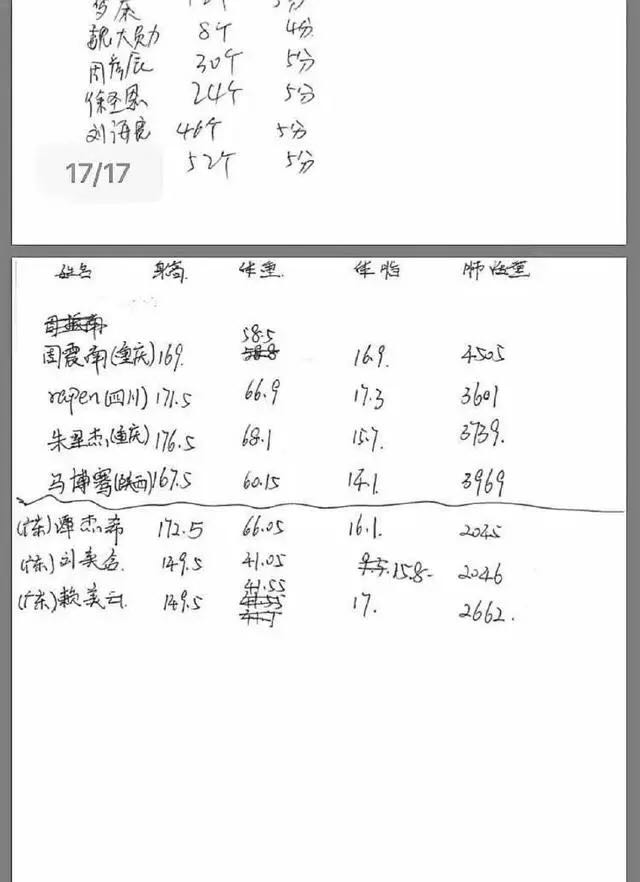 8个 4分
30个 5分
24个 5分
刘海宽 46个 5分
17/17 52个 5分
姓名 身高 体重 体脂 肺活量
58.5
周震南(重庆) 169. 58.8 16.9. 4505
rapen(四川) 171.5 66.9 17.3 3601
朱星杰(重庆) 176.5 68.1 15.7. 3739.
马博骞(陕西) 167.5 60.15 14.1 3969
(广东)谭杰希 172.5 66.05 16.1. 2045
(广东)刘美含. 149.5 41.05 15.8 2046
41.55
(广东)赖美云 149.5 17. 2662.